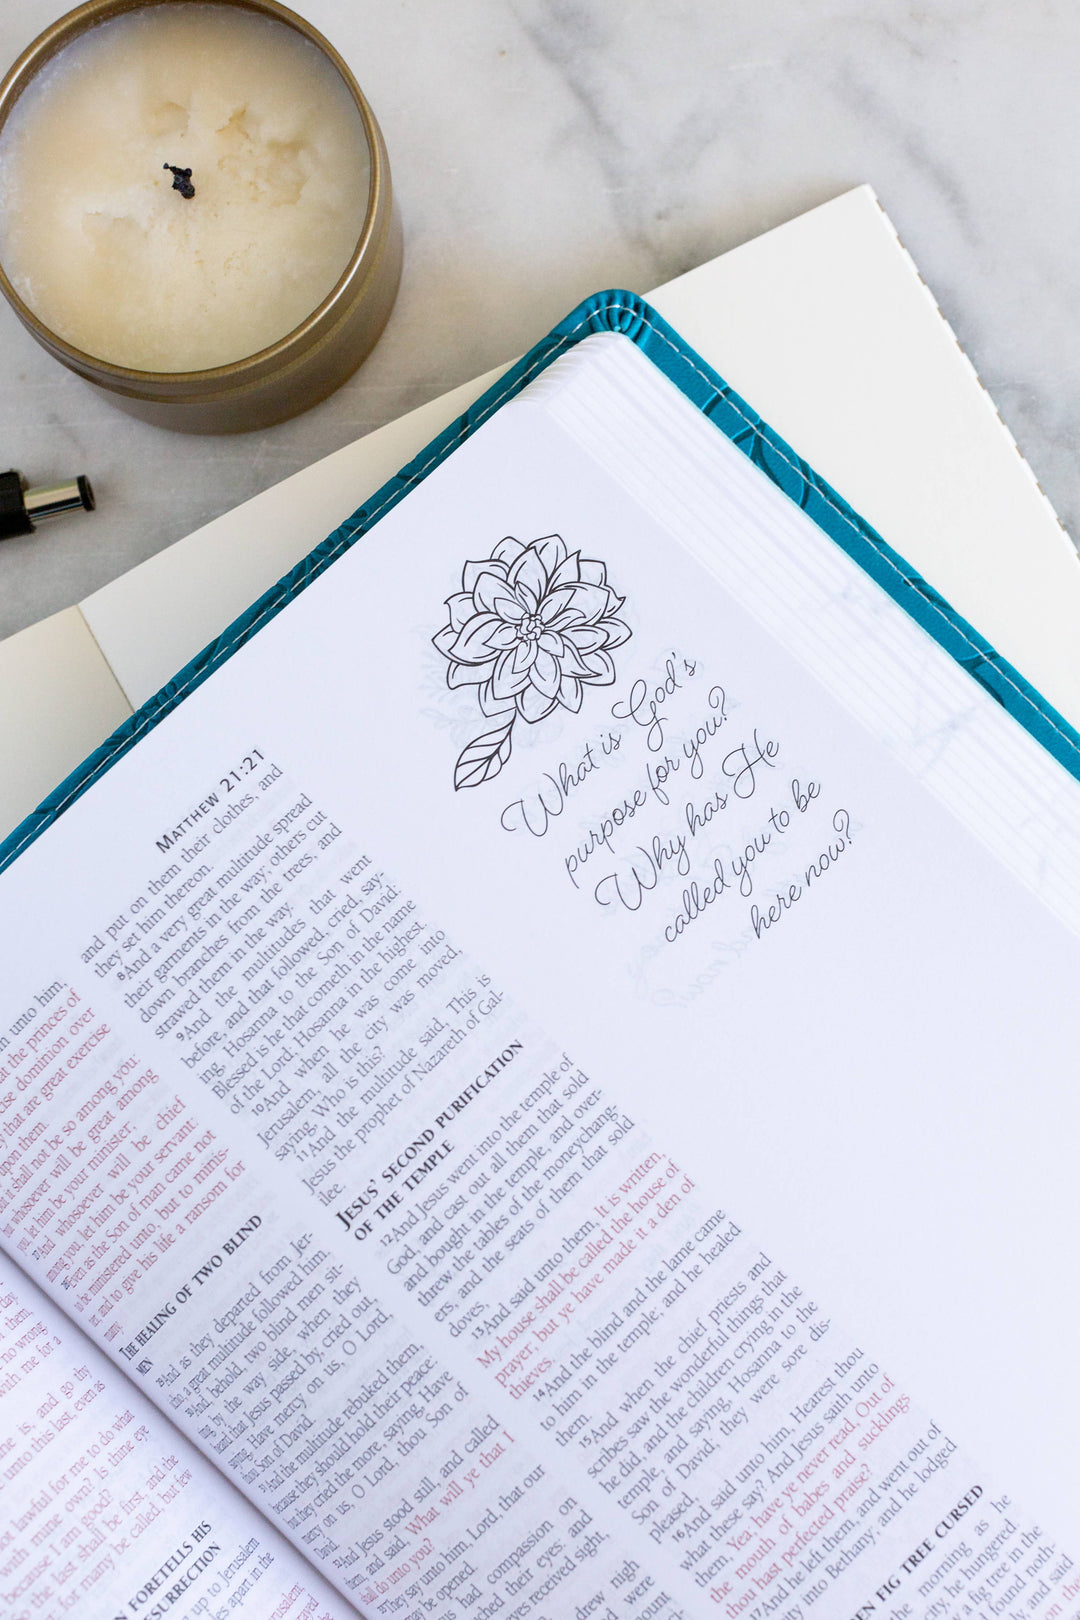 What is God's
purpose for you?
Why has He
called you to be
here now?
MATTHEW 21:21
and put on them their clothes, and
they set him thereon.
8And a very great multitude spread
their garments in the way; others cut
down branches from the trees, and
strawed them in the way.
9And the multitudes that went
before, and that followed, cried, say-
ing, Hosanna to the Son of David:
Blessed is he that cometh in the name
of the Lord; Hosanna in the highest.
10And when he was come into
Jerusalem, all the city was moved,
saying, Who is this?
11And the multitude said, This is
Jesus the prophet of Nazareth of Gal-
ilee.
JESUS' SECOND PURIFICATION
OF THE TEMPLE
12And Jesus went into the temple of
God, and cast out all them that sold
and bought in the temple, and over-
threw the tables of the moneychang-
ers, and the seats of them that sold
doves,
13And said unto them, It is written,
My house shall be called the house of
prayer; but ye have made it a den of
thieves.
14And the blind and the lame came
to him in the temple; and he healed
them.
15And when the chief priests and
scribes saw the wonderful things that
he did, and the children crying in the
temple, and saying, Hosanna to the
Son of David; they were sore dis-
pleased,
16And said unto him, Hearest thou
what these say? And Jesus saith unto
them, Yea; have ye never read, Out of
the mouth of babes and sucklings
thou hast perfected praise?
17And he left them, and went out of
city into Bethany; and he lodged
FIG TREE CURSED
morning as he
city, he hungered.
a fig tree in the
found and noth-
and said
unto him,
at the princes of
dominion over
that are great exercise
upon them.
it shall not be so among you:
but whosoever will be great among
you, let him be your minister;
27And whosoever will be chief
among you, let him be your servant:
28Even as the Son of man came not
to be ministered unto, but to minis-
ter, and to give his life a ransom for
many.
THE HEALING OF TWO BLIND
MEN
29And as they departed from Jer-
icho, a great multitude followed him.
30And, behold, two blind men sit-
ting by the way side, when they
heard that Jesus passed by, cried out,
saying, Have mercy on us, O Lord,
thou Son of David.
31And the multitude rebuked them,
because they should hold their peace:
but they cried the more, saying, Have
mercy on us, O Lord, thou Son of
David.
32And Jesus stood still, and called
them, and said, What will ye that I
shall do unto you?
33They say unto him, Lord, that our
may be opened.
had compassion on
their eyes: and
eyes received sight,
drew nigh
were
no wrong
with me for a
is, and go thy
unto this last, even as
not lawful for me to do what
with mine own? Is thine eye
because I am good?
the last shall be first, and the
for many be called, but few
FORETELLS HIS
up to Jerusalem
apart in the